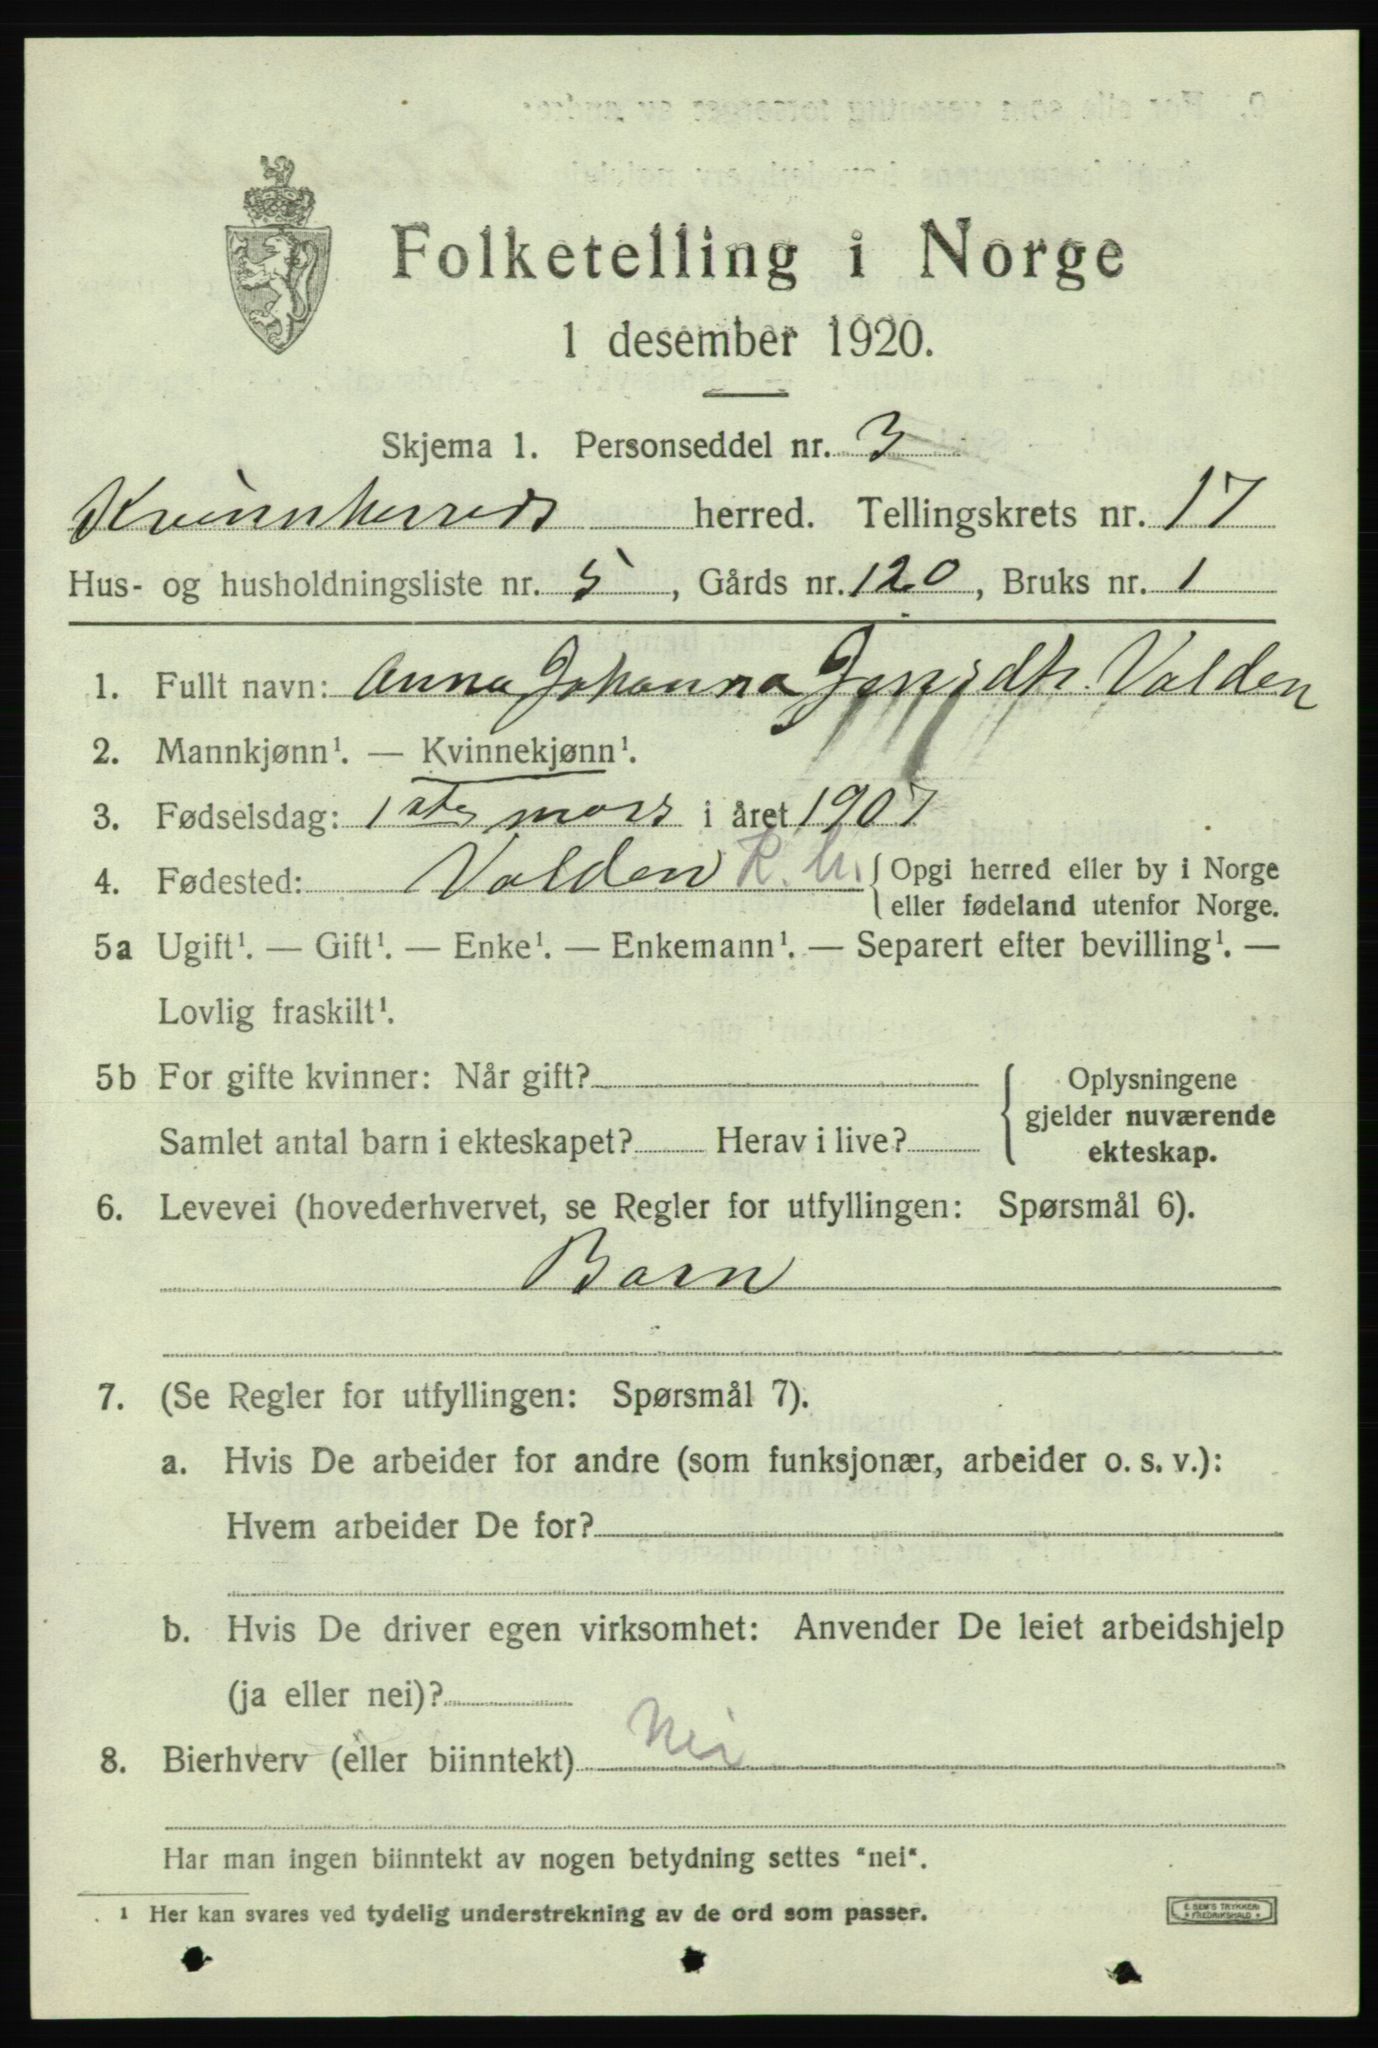 Folketelling i Norge
1 desember 1920.
Skjema 1. Personseddel nr. 3
Kvinnherreds herred. Tellingskrets nr. 17
Hus- og husholdningsliste nr. 5, Gårds nr. 120, Bruks nr. 1
1. Fullt navn: Anna Johanna Valden
2. Mannkjønn¹. — Kvinnekjønn¹.
3. Fødselsdag: 1ste mars i året 1907
4. Fødested: Valden K. h. { Opgi herred eller by i Norge
eller fødeland utenfor Norge.
5a Ugift¹. — Gift¹. — Enke¹. — Enkemann¹. — Separert efter bevilling¹. —
Lovlig fraskilt¹.
5b For gifte kvinner: Når gift? { Oplysningene
gjelder nuværende
Samlet antal barn i ekteskapet? Herav i live? ekteskap.
6. Levevei (hovederhvervet, se Regler for utfyllingen: Spørsmål 6).
Barn
7. (Se Regler for utfyllingen: Spørsmål 7).
a. Hvis De arbeider for andre (som funksjonær, arbeider o. s. v.):
Hvem arbeider De for?
b. Hvis De driver egen virksomhet: Anvender De leiet arbeidshjelp
(ja eller nei)?
8. Bierhverv (eller biinntekt) Nei
Har man ingen biinntekt av nogen betydning settes "nei".
¹ Her kan svares ved tydelig understrekning av de ord som passer.
E. SEM'S TRYKKERI
FREDRIKSHALD